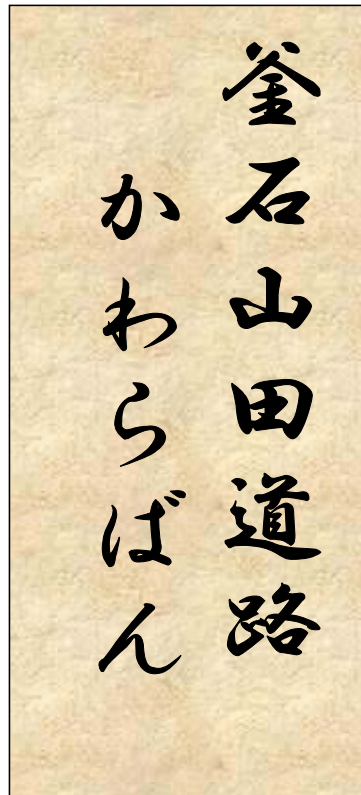 釜石山田道路
かわらばん